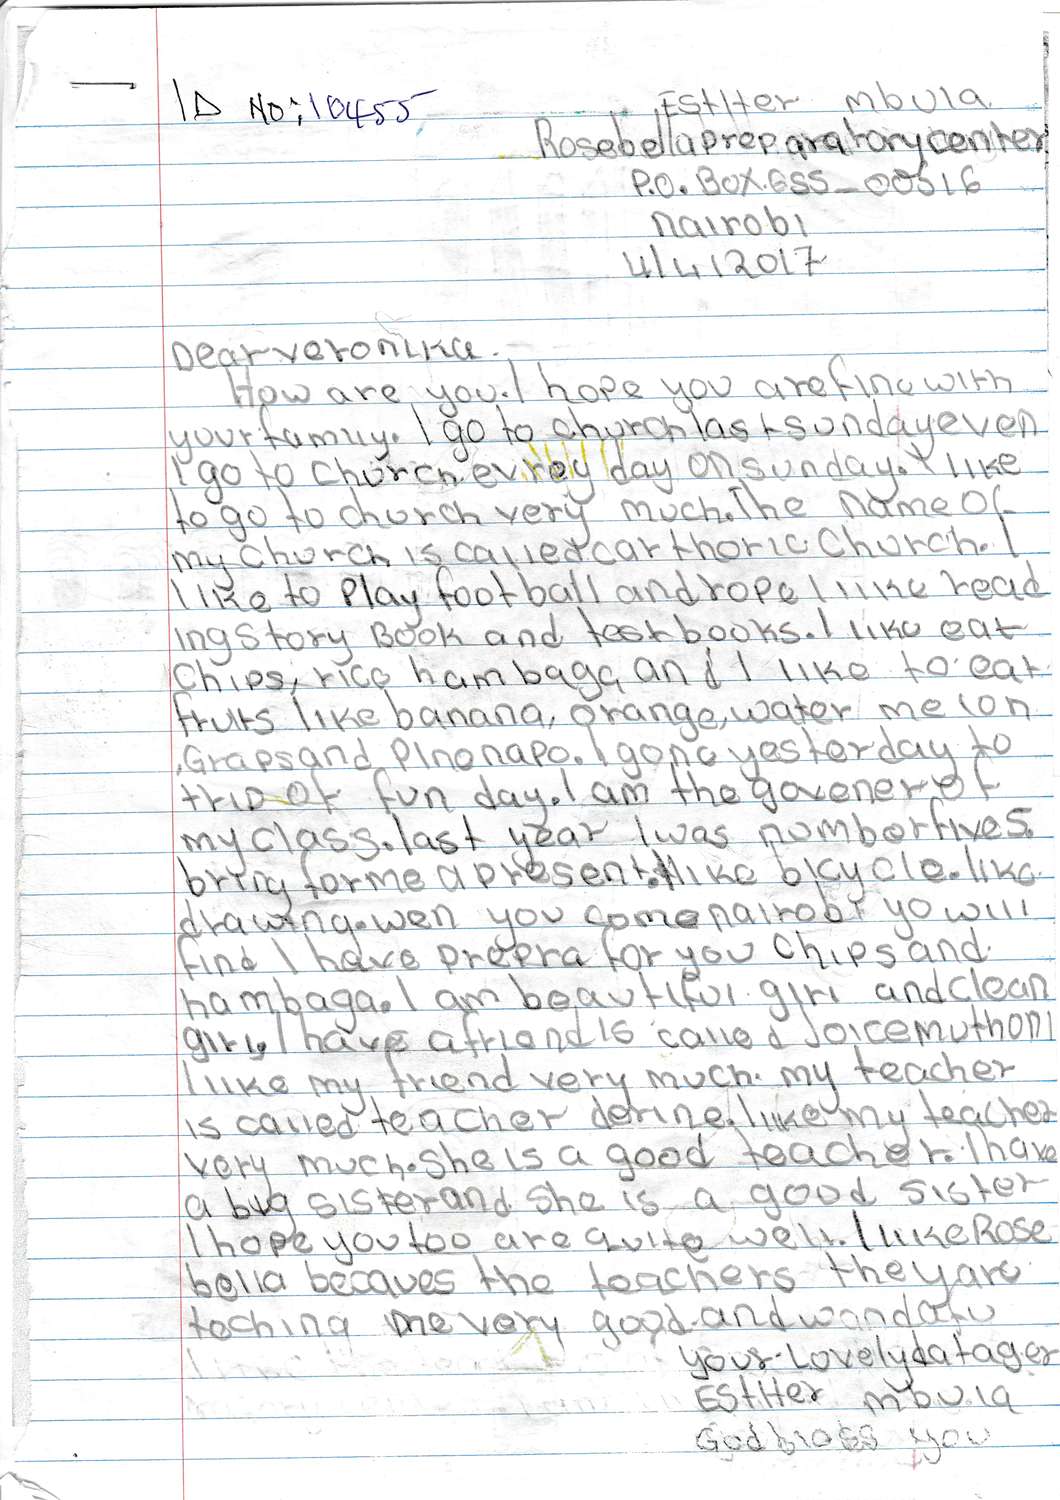 ID No: 10455
EstHer mbula
Rosebella preparatory center
P.O. BOX. 655-00516
Nairobi
4/4/2017
Dear veronika.
How are you. I hope you are fine with
your family. I go to church last sunday even
I go to church evrey day on sunday. I like
to go to church very much. The name of
my church is called carthoric church. I
like to play football and rope I like read
ing story Book and testbooks. I like eat
chips, rice hambaga and I like to eat
fruits like banana, orange, water melon
, Graps and pinenapo. I gone yesterday to
trip of fun day. I am the govener of
my class. last year I was number fives.
bring for me a present. I like bicycle. like
drawing. wen you come nairobi yo will
find I have prepra for you chips and
hambaga. I am beautiful girl and clean
girl, I have a friend is called Joice muthoni
I like my friend very much. my teacher
is called teacher derine. like my teacher
very much. she is a good teacher. I have
a big sister and she is a good sister
I hope you too are quite well. I like Rose
bella becaues the teachers they are
teching me very good. and wondafu
your. Lovely datager
EstHer mbula
God bless you